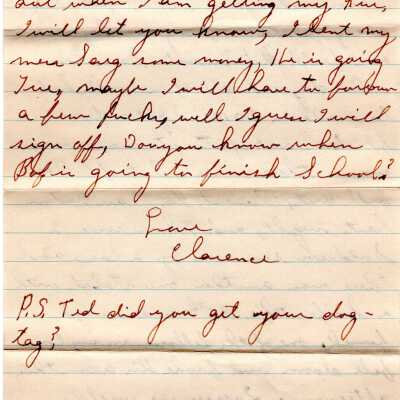 but when I am getting my Fur,
I will let you know, I lent my
mess Sarg some money, He is going
Tue, maybe I will have to borrow
a few bucks, well I guess I will
sign off, Do you know when
Bob is going to finish School?
Love
Clarence
P.S. Ted did you get your dog-
tag?